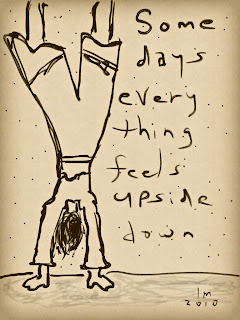 Some
days
every
thing
feels
upside
down
lm
2010